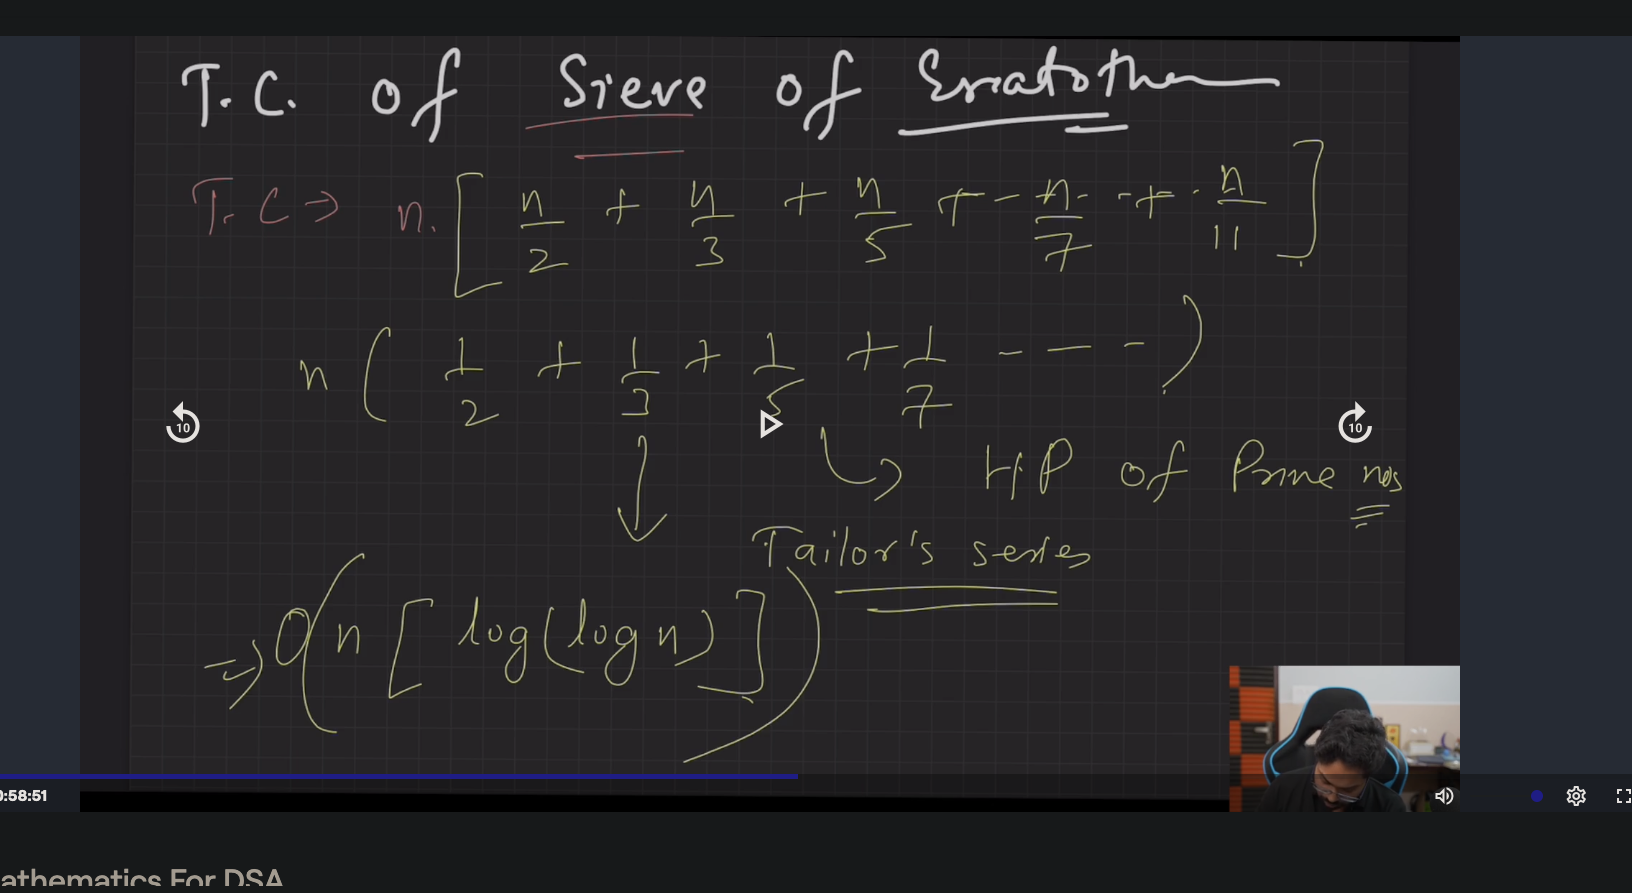 T.C. of Sieve of Erratothen
T.C ⇒ n. [ n/2 + n/3 + n/5 + - n/7 - - + - n/11 ]
n ( 1/2 + 1/3 + 1/5 + 1/7 - - - )
10
10
HP of Prime nos
Tailor's series
⇒ O ( n [ log(log n) ] )
0:58:51
athematics For DSA